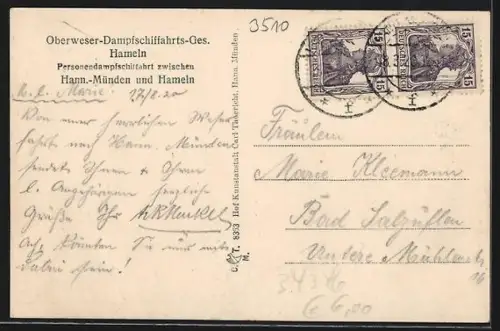 3510
Oberweser-Dampfschiffahrts-Ges.
Hameln
Personendampfschiffahrt zwischen
Hann.-Münden und Hameln
Marie! 17/8.20
Von einer herrlichen Weser
fahrt nach Hann. Münden
sendet Ihnen + Ihren
l. Angehörigen herzliche
Grüße Ihr
Ach, könnten Sie nur mit
dabei sein!
Hof Kunstanstalt Carl Thoericht, Hann. Münden
8313
DEUTSCHES REICH
15 15
DEUTSCHES REICH
15 15
Fräulein
Marie Kleemann
Bad Salzuflen
Untere Mühlenstr
16
6,00